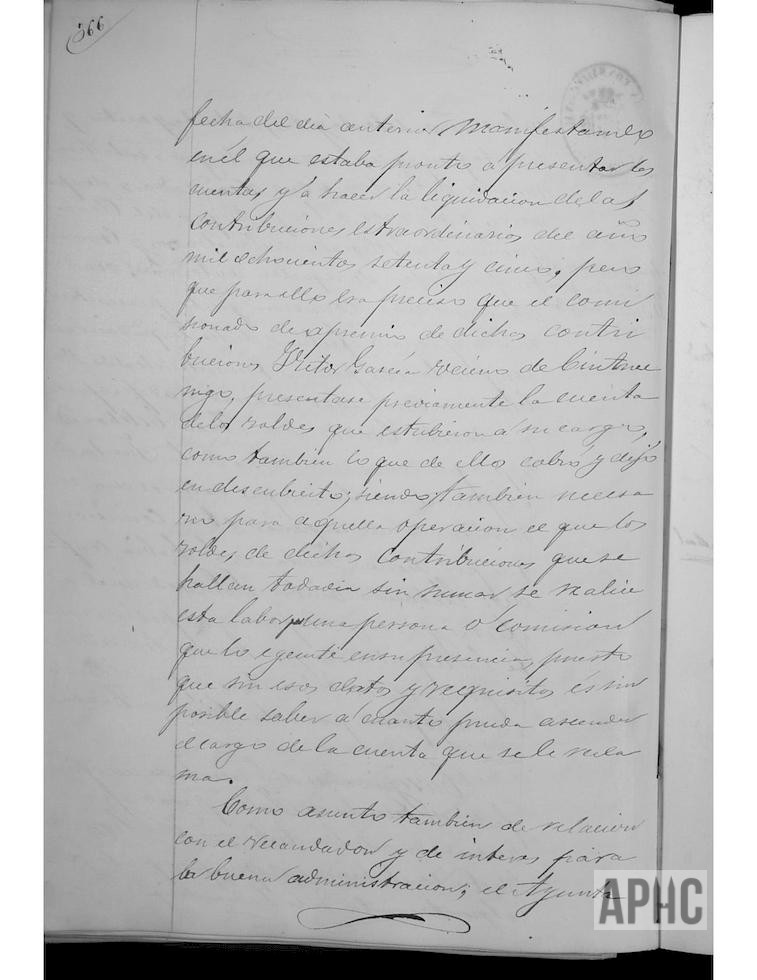 366
fecha del dia anterior manifestando
en él que estaba pronto a presentar las
cuentas y a hacer la liquidacion de las
contribuciones estraordinarias del año
mil ochocientos setenta y cinco, pero
que para ello era preciso que el comi
sionado de apremio de dichas contri
buciones Victor Garcia vecino de Cintrue
nigo, presentase previamente la cuenta
de los roldes que estubieron a su cargo,
como tambien lo que de ellos cobró y dejó
en descubierto; siendo tambien necesa
rio para aquella operacion el que los
roldes de dichas contribuciones que se
hallan todavia sin sumar se realice
esta labor por una persona ó comision
que lo egecute en su presencia, puesto
que sin esos datos y requisitos és im
posible saber a cuanto pueda ascender
el cargo de la cuenta que se le recla
ma.
Como asunto tambien de relacion
con el recaudador y de interes para
la buena administracion; el Ayunta
APHC